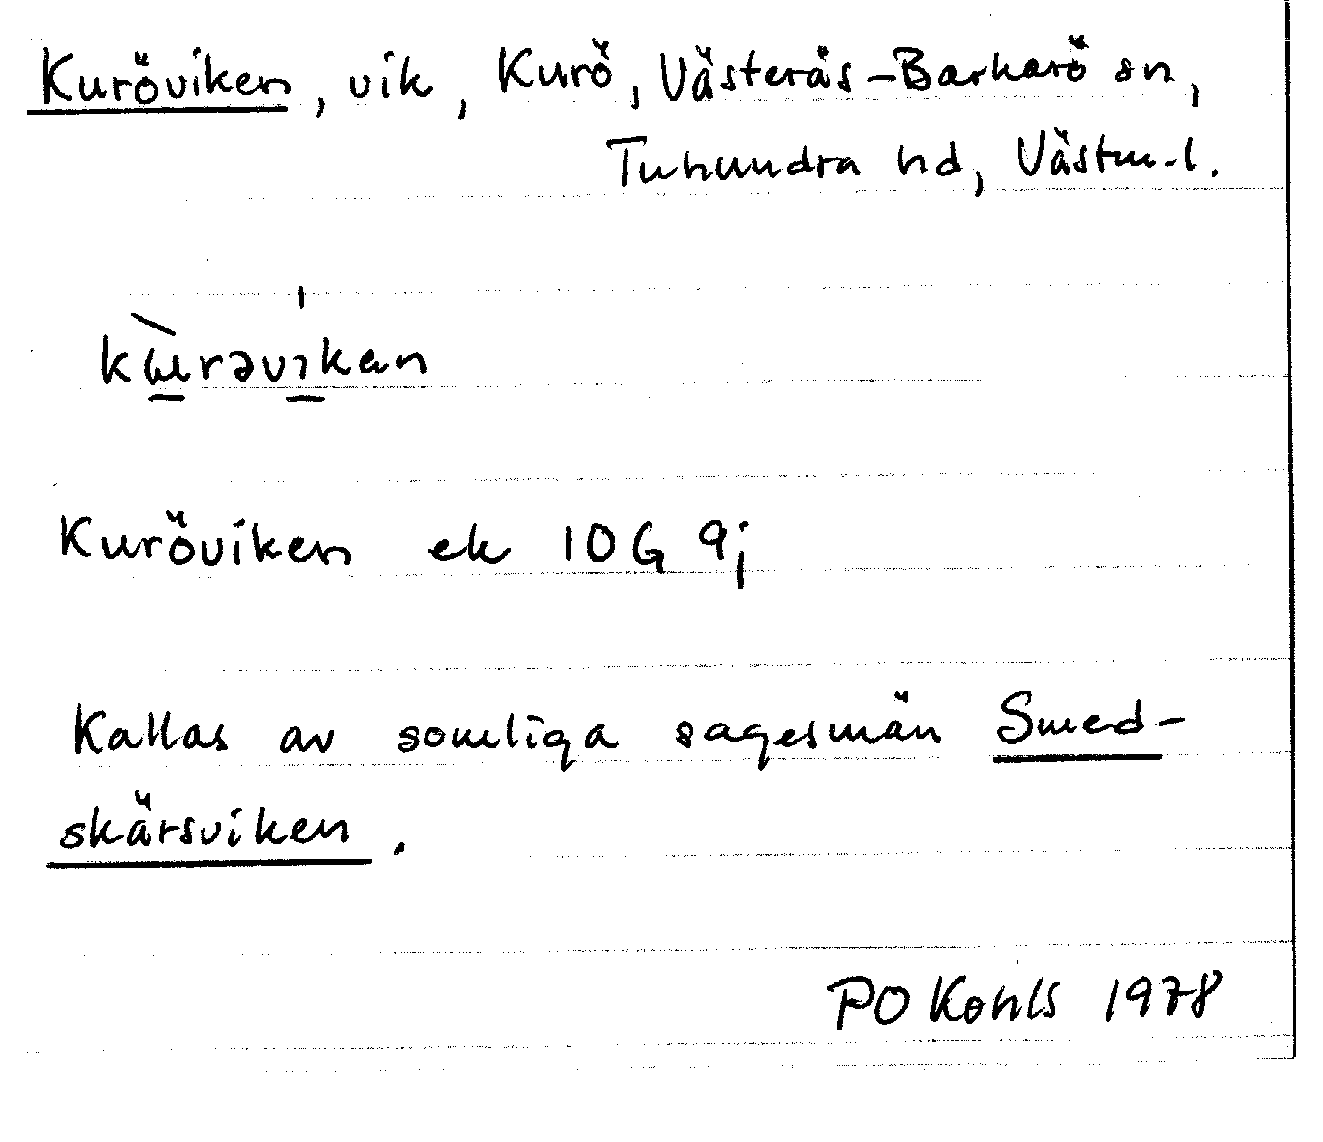 Kuröviken, vik, Kurö, Västerås-Barkarö sn,
Tuhundra hd, Västm.l.
kɯ̀rəvıkan
Kuröviken ek 10G 9j
Kallas av somliga sagesmän Smed-
skärsviken.
PO Kohls 1978